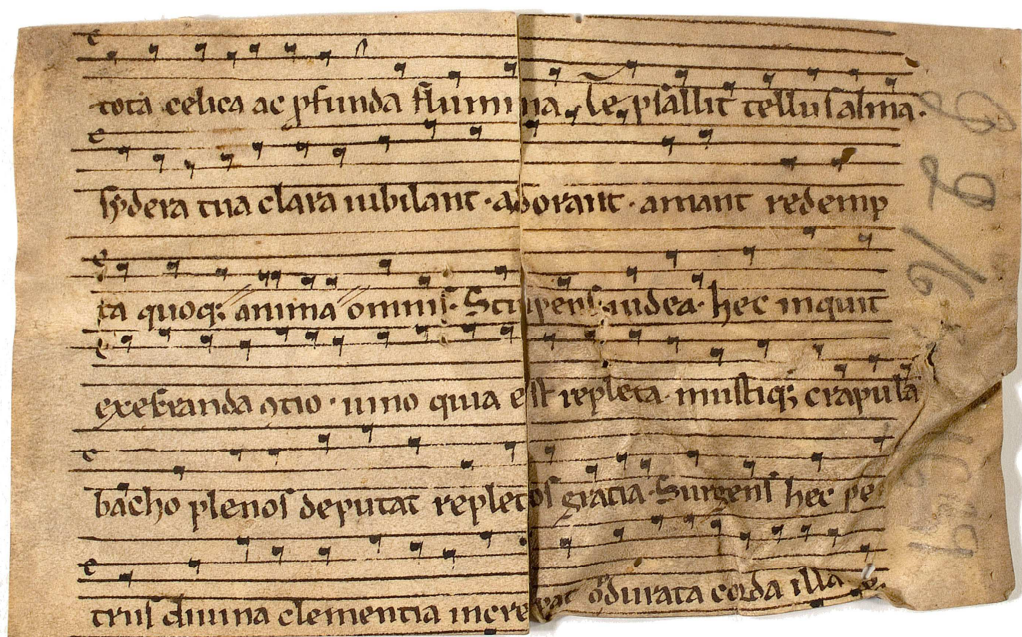 tota celica ac pfunda flumina. Te psallit tellus alma.
sydera tua clara iubilant · adorant · amant redemp
ta quoq; anima omnis · Stupens iudea · hec inquit
execranda ꝯtio · uino quia est repleta mustiq; crapula
bacho plenos deputat repletos gratia · Surgens hec pe
trus diuina clementia increpat obdurata corda illa